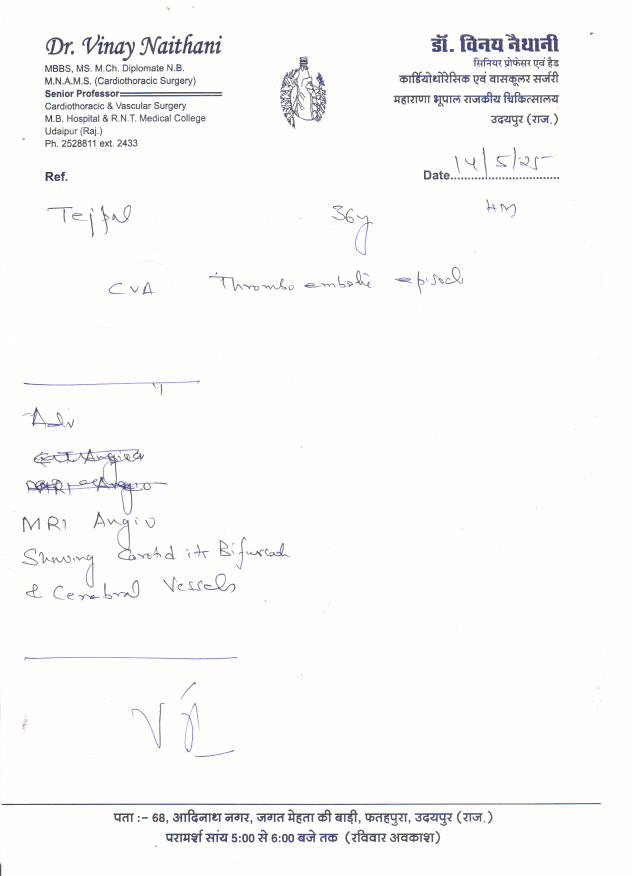 Dr. Vinay Naithani
MBBS, MS. M.Ch. Diplomate N.B.
M.N.A.M.S. (Cardiothoracic Surgery)
Senior Professor
Cardiothoracic & Vascular Surgery
M.B. Hospital & R.N.T. Medical College
Udaipur (Raj.)
Ph. 2528811 ext. 2433
डॉ. विनय नैथानी
सिनियर प्रोफेसर एवं हैड
कार्डियोथोरेसिक एवं वासकूलर सर्जरी
महाराणा भूपाल राजकीय चिकित्सालय
उदयपुर (राज.)
Ref.
Date 14/5/25
Tejpal 36y HM
CVA Thrombo embolic episode
Adv
MRI Angio
MRI Angio
Showing Carotid its
& Cerebral Vessels
पता :– 68, आदिनाथ नगर, जगत मेहता की बाड़ी, फतहपुरा, उदयपुर (राज.)
परामर्श सांय 5:00 से 6:00 बजे तक (रविवार अवकाश)